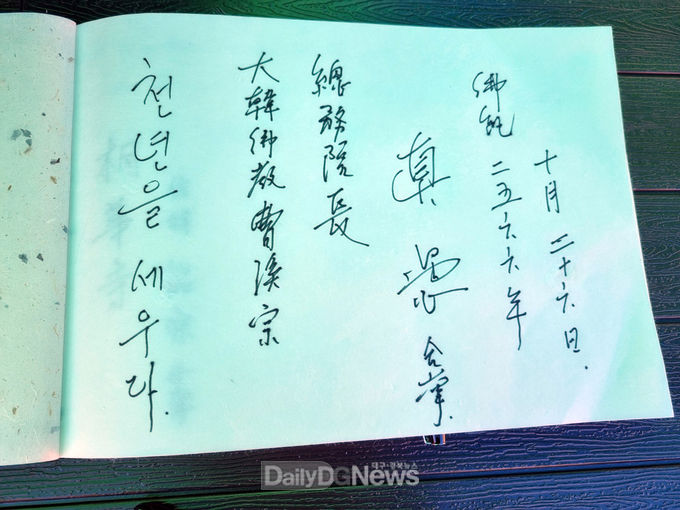 천년을 세우다.
大韓佛敎曹溪宗
總務院長
眞愚 合掌.
佛紀 二五六六年
十月 二十六日.
대구·경북뉴스
DailyDGNews